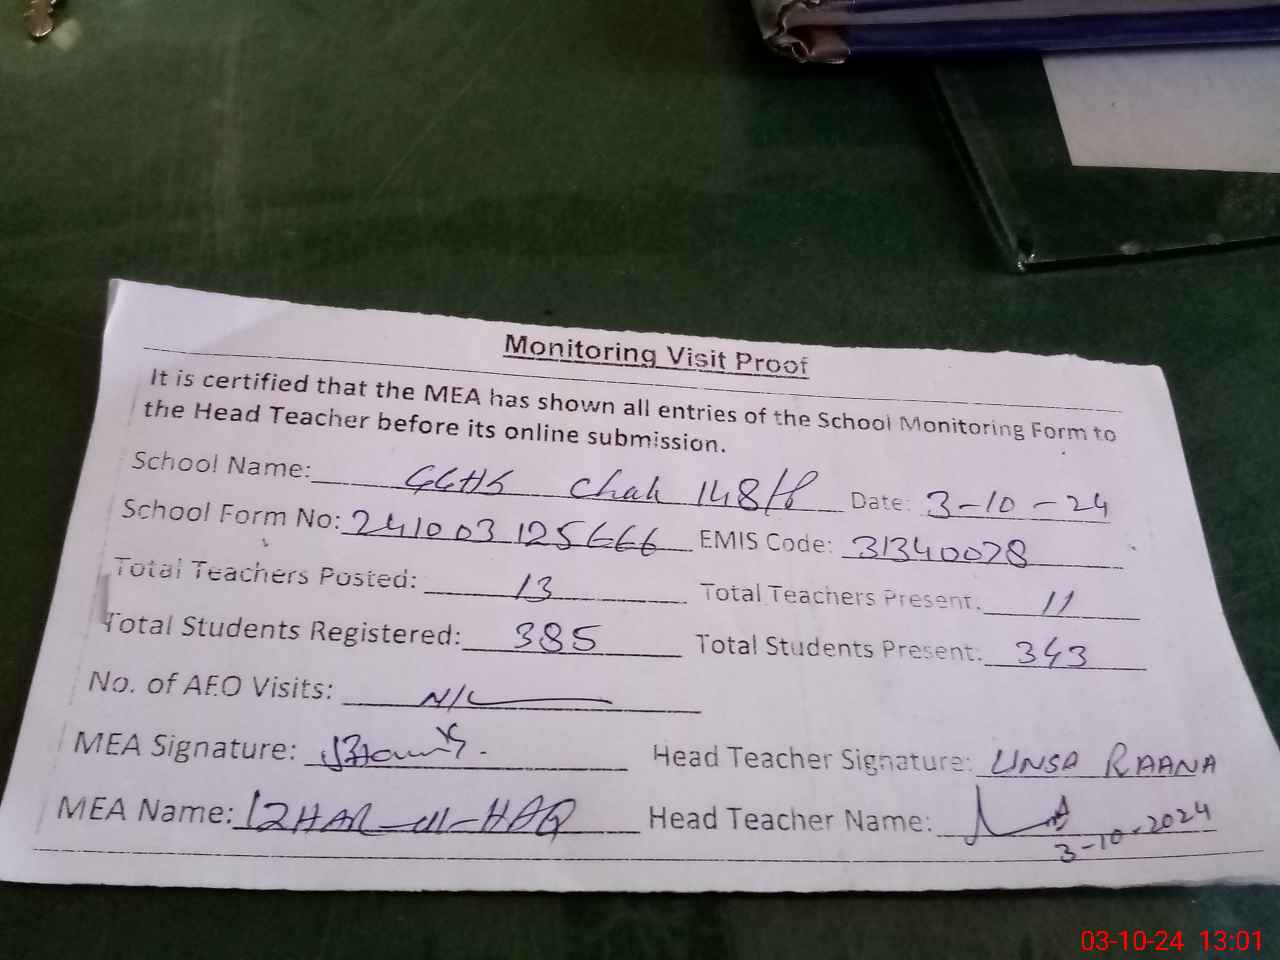 Monitoring Visit Proof
It is certified that the MEA has shown all entries of the School Monitoring Form to
the Head Teacher before its online submission.
School Name: GGHS Chak 148/P Date: 3-10-24
School Form No: 241003125666 EMIS Code: 31340078
Total Teachers Posted: 13 Total Teachers Present: 11
Total Students Registered: 385 Total Students Present: 343
No. of AEO Visits: N/L
MEA Signature: Head Teacher Signature: UNSA RAANA
MEA Name: IZHAR-ul-HAQ Head Teacher Name:
3-10-2024
03-10-24 13:01